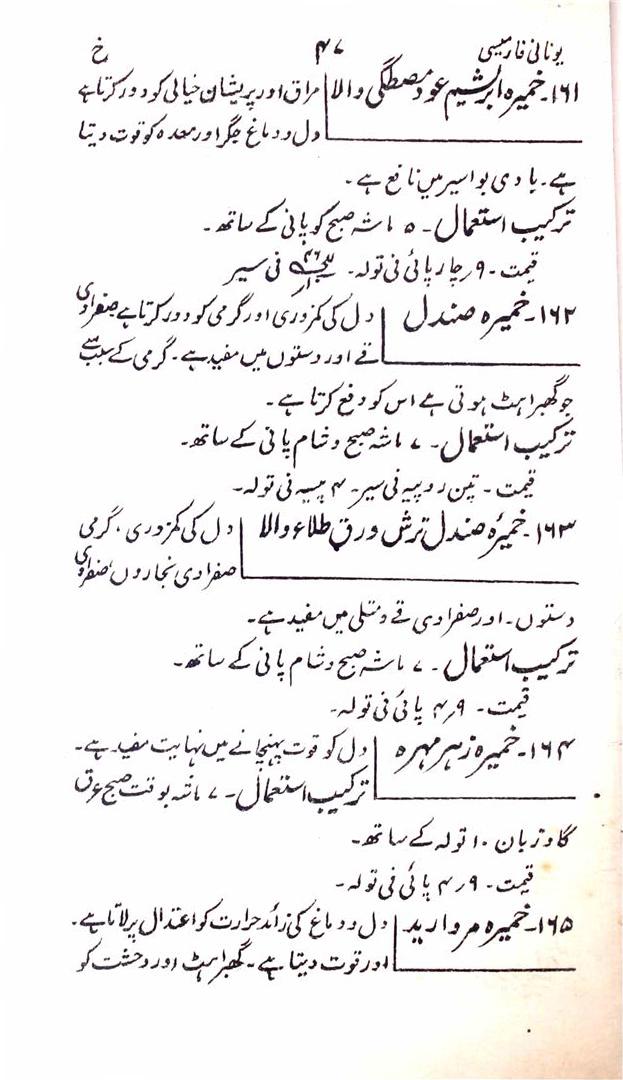 یونانی فارمیسی ۴۷ خ
۱۶۱۔ خمیرہ ابریشم عود مصطگی والا مراق اور پریشان خیالی کو دور کرتا ہے
دل و دماغ جگر اور معدہ کو قوت دیتا
ہے۔ بادی بواسیر میں نافع ہے۔
ترکیب استعمال۔ ۵ ماشہ صبح کو پانی کے ساتھ۔
قیمت۔ ۹ر چار پائی فی تولہ۔ فی سیر
۱۶۲۔ خمیرہ صندل دل کی کمزوری اور گرمی کو دور کرتا ہے صفراوی
قے اور دستوں میں مفید ہے۔ گرمی کے سبب سے
جو گھبراہٹ ہوتی ہے اس کو دفع کرتا ہے۔
ترکیب استعمال۔ ۷ ماشہ صبح و شام پانی کے ساتھ۔
قیمت۔ تین روپیہ فی سیر۔ ۴ پیسہ فی تولہ۔
۱۶۳۔ خمیرۂ صندل ترش ورق طلاء والا دل کی کمزوری، گرمی
صفراوی بخاروں، صفراوی
دستوں۔ اور صفراوی قے و متلی میں مفید ہے۔
ترکیب استعمال۔ ۷ ماشہ صبح و شام پانی کے ساتھ۔
قیمت۔ ۹ر۴ پائی فی تولہ۔
۱۶۴۔ خمیرہ زہر مہرہ دل کو قوت پہنچانے میں نہایت مفید ہے۔
ترکیب استعمال۔ ۷ ماشہ بوقت صبح عرق
گاوزبان ۱۰ تولہ کے ساتھ۔
قیمت۔ ۹ر۴ پائی فی تولہ۔
۱۶۵۔ خمیرہ مروارید دل و دماغ کی زائد حرارت کو اعتدال پر لاتا ہے۔
اور قوت دیتا ہے۔ گھبراہٹ اور وحشت کو